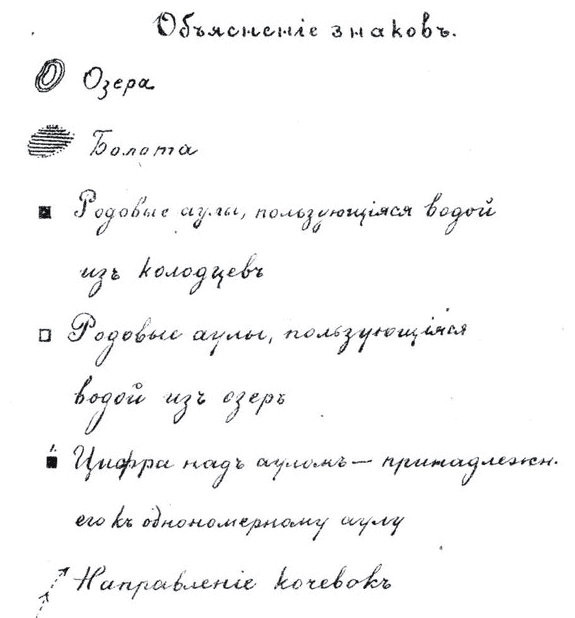 Объясненіе знаковъ.
Озера
Болота
Родовые аулы, пользующіяся водой
изъ колодцевъ
Родовые аулы, пользующіяся
водой изъ озеръ
1.
Цифра надъ ауломъ — принадлежн.
его къ одномерному аулу
Направленіе кочевокъ